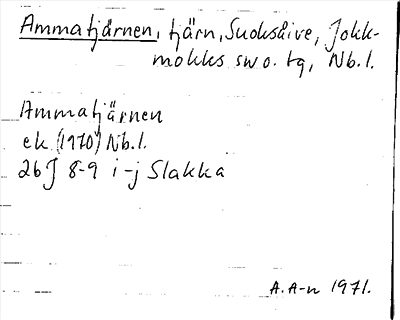 Ammatjärnen, tjärn, Suokskive, Jokk-
mokks sw o. tg, Nb.l.
Ammatjärnen
ek (1970) Nb.l.
26J 8-9 i-j Slakka
A. A-n 1971.